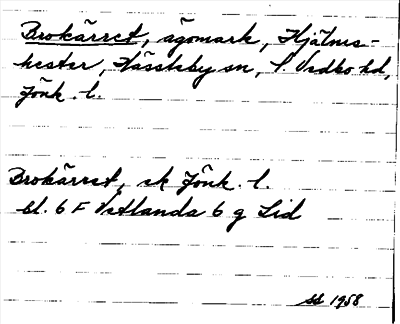 Brokärret, ägomark, Hjälmse-
kester, Hässleby sn, S. Vedbo hd,
Jönk. l.
Brokärret, ek Jönk. l.
bl. 6 F Vetlanda 6 g Lid
ss 1958